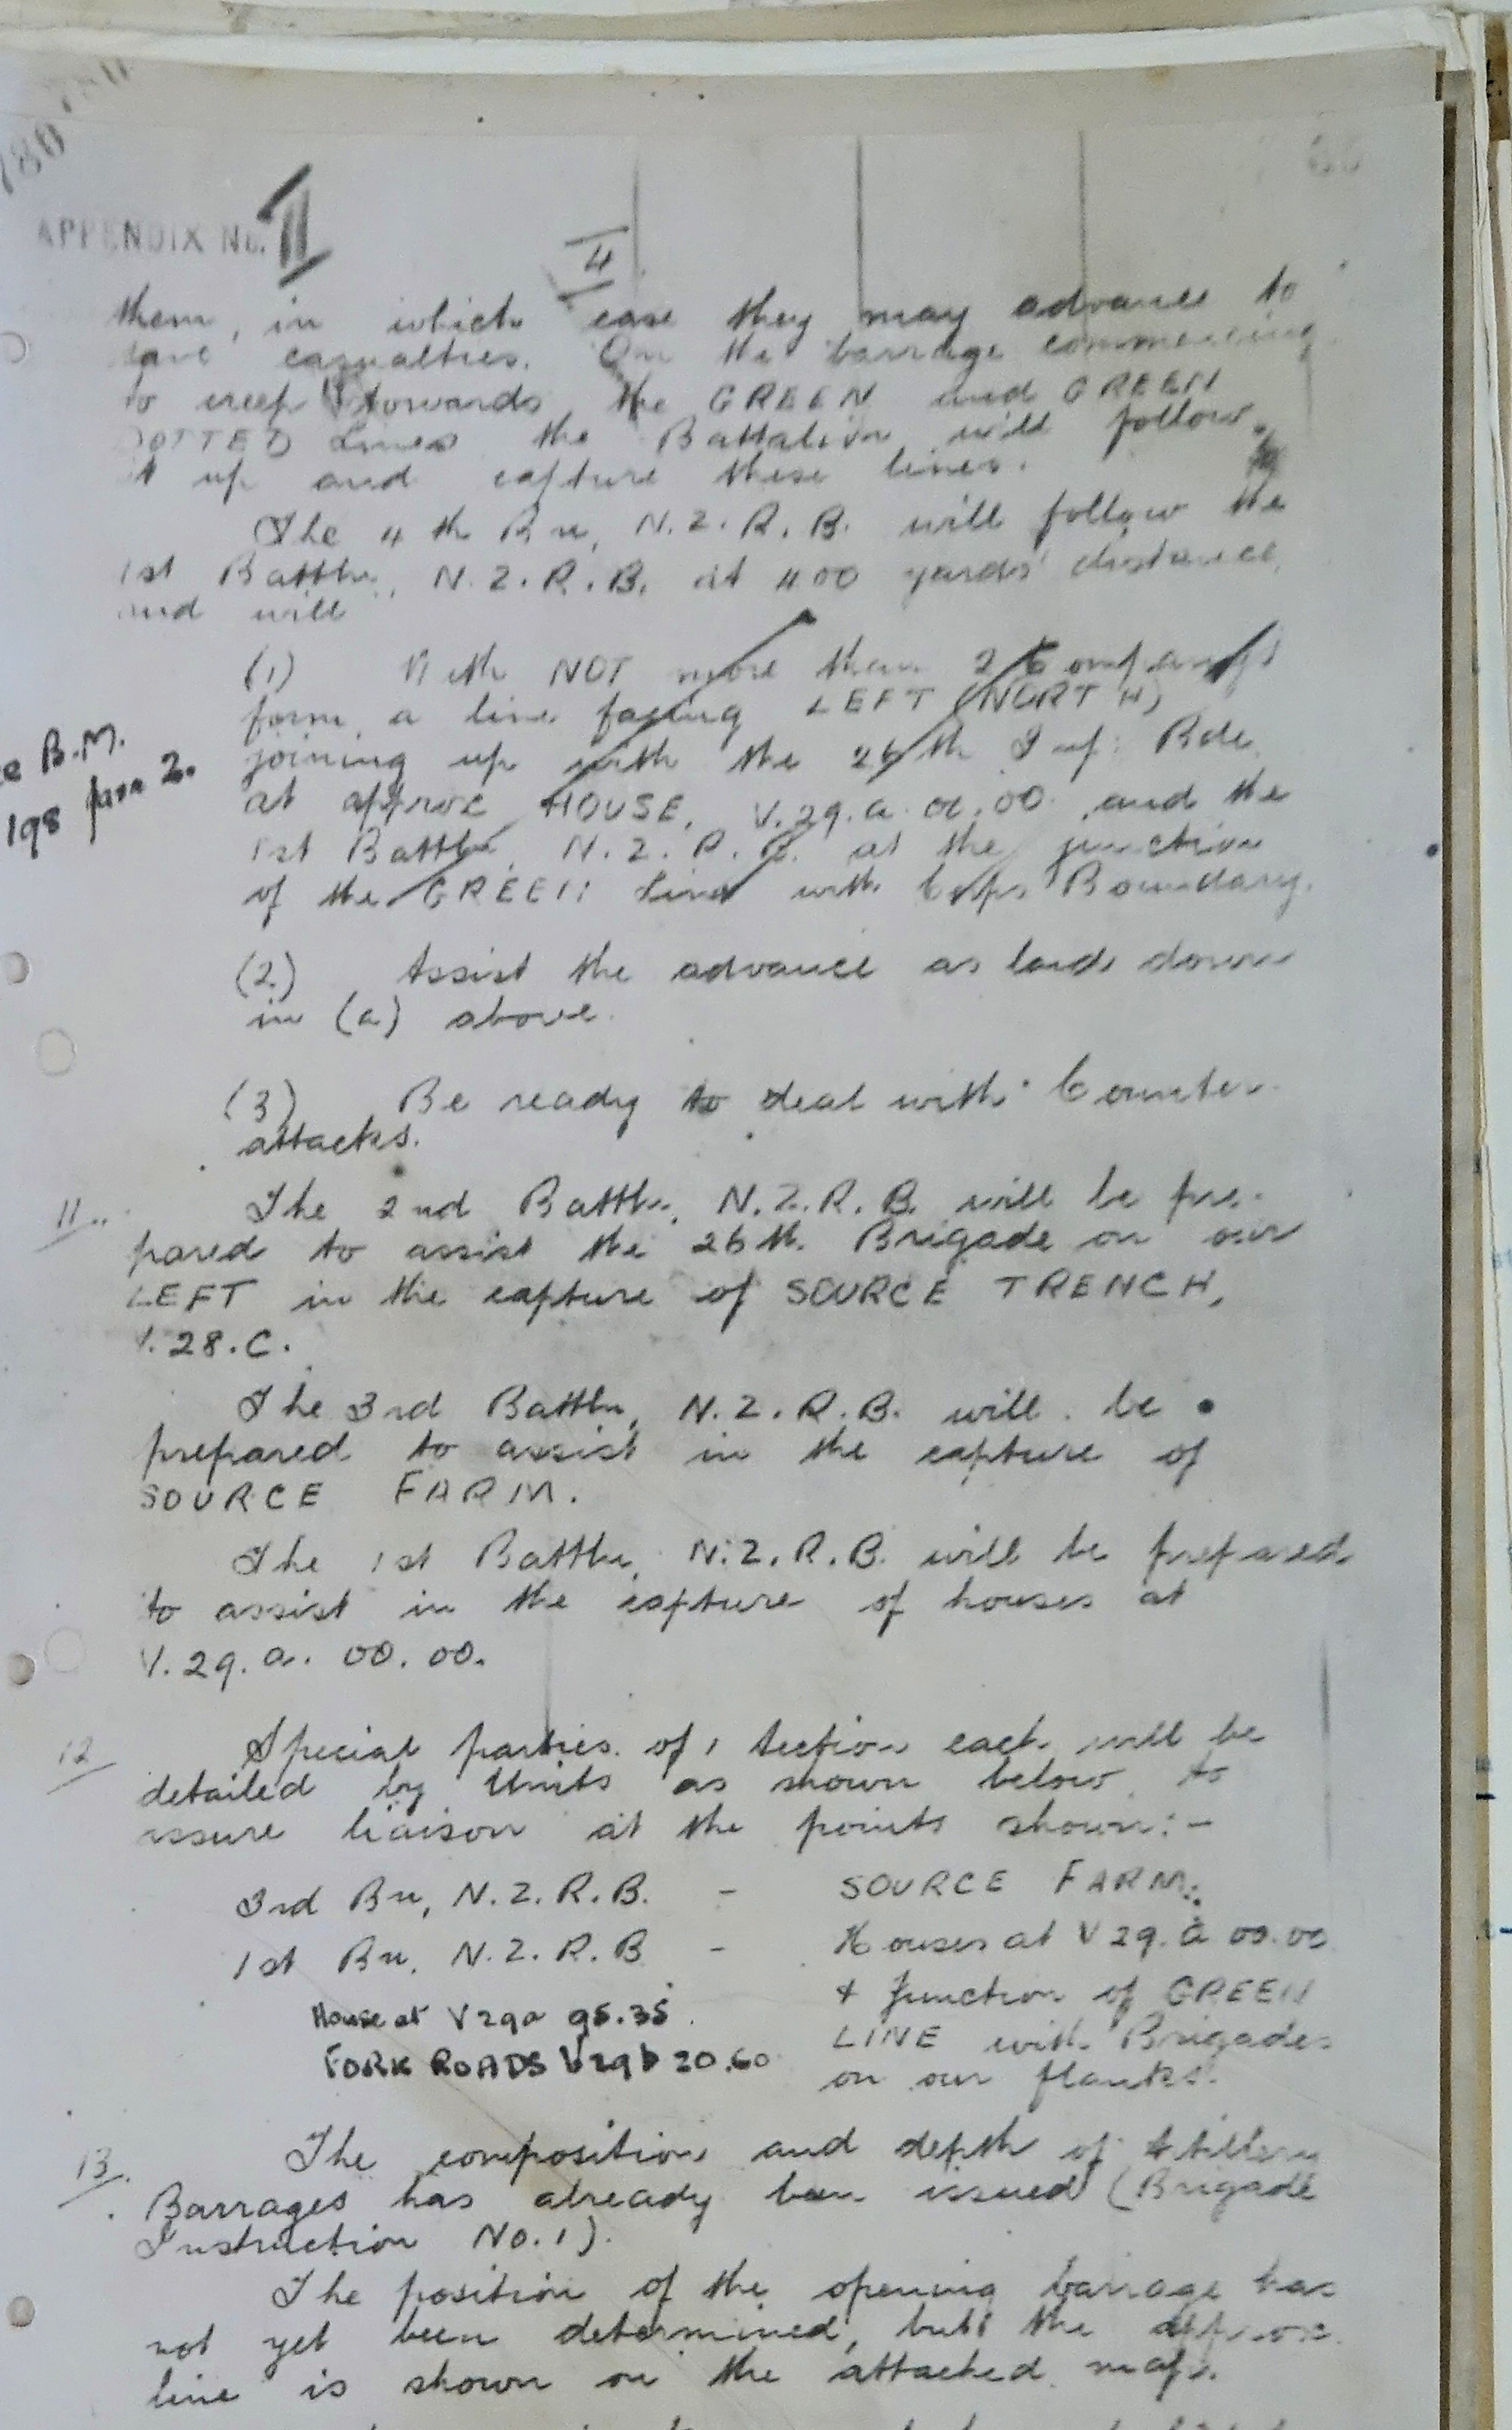 780 780
APPENDIX No. II
4
them, in which case they may advance to
save casualties. On the barrage commencing
to creep towards the GREEN and GREEN
DOTTED Lines the Battalion will follow
it up and capture these lines.
The 4th Bn, N.Z.R.B. will follow the
1st Battln, N.Z.R.B. at 400 yards' distance
and will
(1) With NOT more than 2 Companys
form a line facing LEFT (NORTH)
joining up with the 26th Inf: Bde
at approx HOUSE, V.29.a.01.00 and the
1st Battln, N.Z.R.B. at the junction
of the GREEN Line with Corps Boundary.
e B.M.
198 para 2.
(2) Assist the advance as laid down
in (a) above.
(3) Be ready to deal with Counter
attacks.
11. The 2nd Battln, N.Z.R.B. will be pre-
pared to assist the 26th Brigade on our
LEFT in the capture of SOURCE TRENCH,
V.28.C.
The 3rd Battln, N.Z.R.B. will be
prepared to assist in the capture of
SOURCE FARM.
The 1st Battln, N.Z.R.B. will be prepared
to assist in the capture of houses at
V.29.a.00.00.
12 Special parties of 1 Section each will be
detailed by Units as shown below to
assure liaison at the points shown:-
3rd Bn, N.Z.R.B. - SOURCE FARM.
1st Bn, N.Z.R.B - Houses at V29.a 00.00
& junction of GREEN
LINE with Brigades
on our flanks.
House at V29a 95.35.
FORK ROADS V29b 20.60
13. The composition and depth of Artillery
Barrages has already been issued (Brigade
Instruction No.1).
The position of the opening barrage has
not yet been determined, but the approx.
line is shown on the attached map.